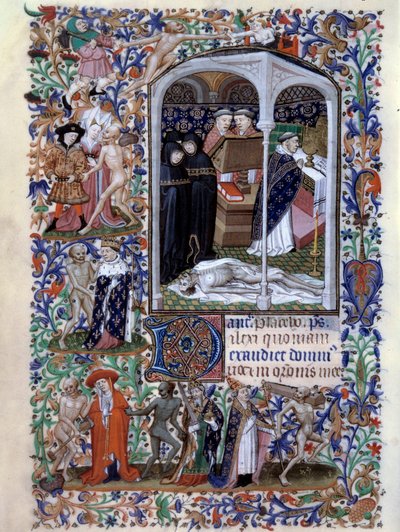 ant̄. Placebo. ps.
Dilexi quoniam
exaudiet domin
vocem or̄onis mee